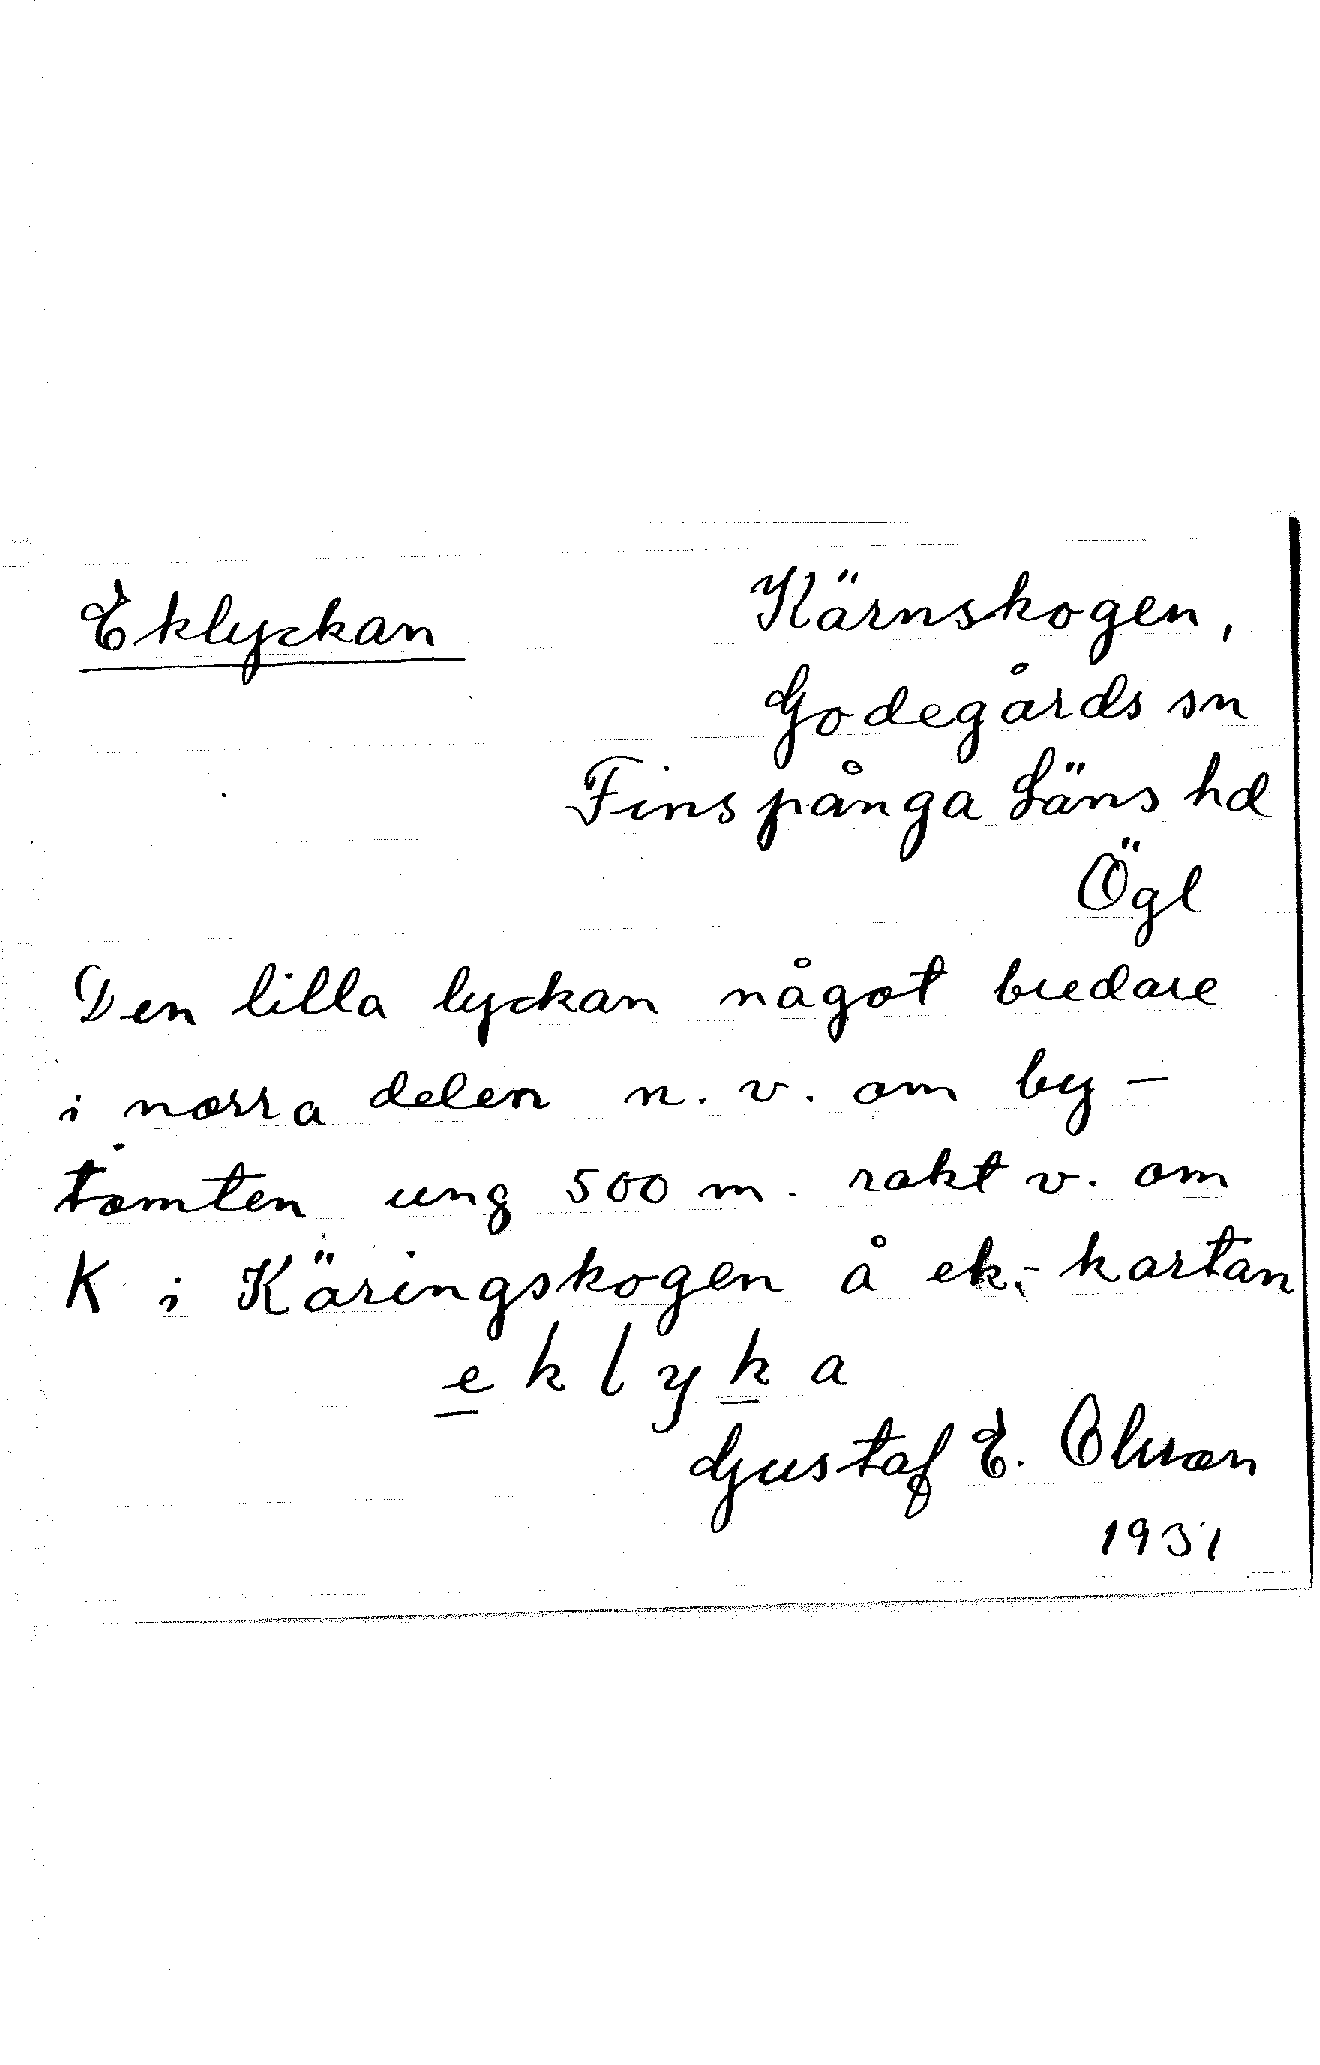 Eklyckan
Kärnskogen,
Godegårds sn
Finspånga Läns hd
Ögl
Den lilla lyckan något bredare
i norra delen n.v. om by-
tomten ung 500 m. rakt v. om
K i Käringskogen å ek.-kartan
eklyka
Gustaf E. Olsson
1931